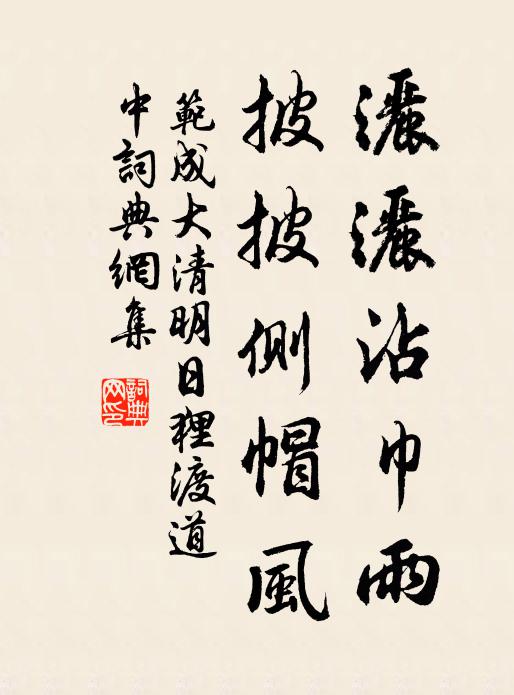 灑灑沾巾雨
披披側帽風
範成大清明日狸渡道
中詞典網集
詞典
网印